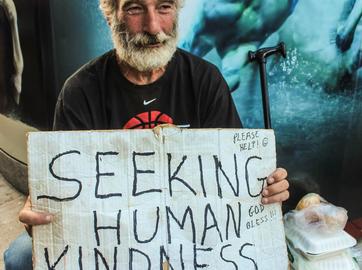 PLEASE
HELP! ☺
SEEKING
HUMAN
GOD
BLESS!!!
KINDNESS